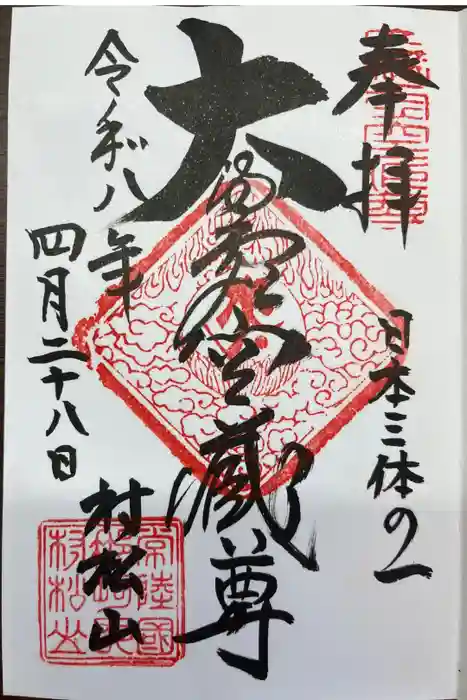 奉拝
日本三体の一
大満虚空蔵尊
令和八年
四月二十八日
村松山